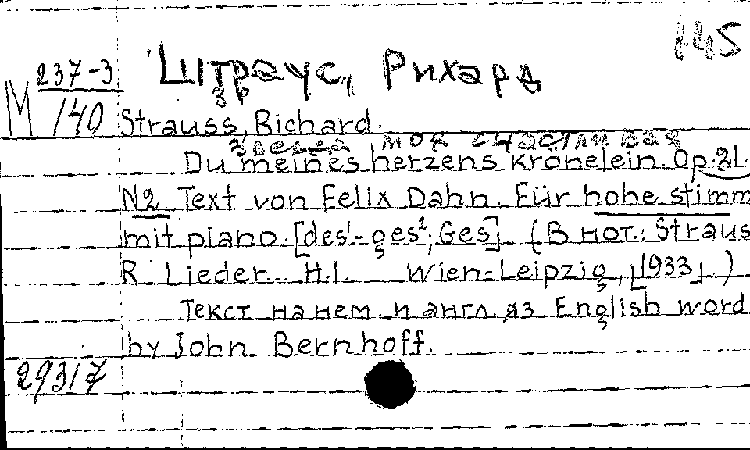 145
237-3 Штраус, Рихард
М 140 Strauss, Richard.
Звезда моя счастливая
Du meines herzens Krönelein. Op. 21.
N2 Text von Felix Dahn. Für hohe stimm
mit piano. [des¹-ges²; Ges] (В нот.: Straus
R. Lieder. H.I. Wien-Leipzig, [1933].)
Текст на нем. и англ. яз. English word
by John Bernhoff.
29317